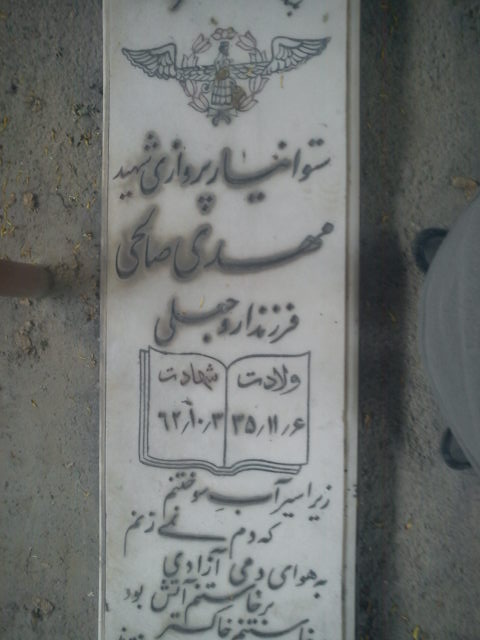 ستوانیار پروازی شهید
مهدی صالحی
فرزند اروجعلی
ولادت شهادت
۳۵/۱۱/۶ ۶۲/۱۰/۳
زیرا اسیر آب سوختنم
که دم نمی زنم
به هوای دمی آزادی
برخاستنم آتش بود
خاکستر